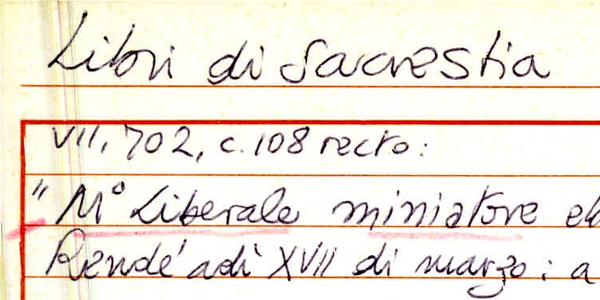 Libri di Sacrestia
VII, 702, c. 108 recto:
"Mº Liberale miniatore
Rendé adì XVII di marzo: a